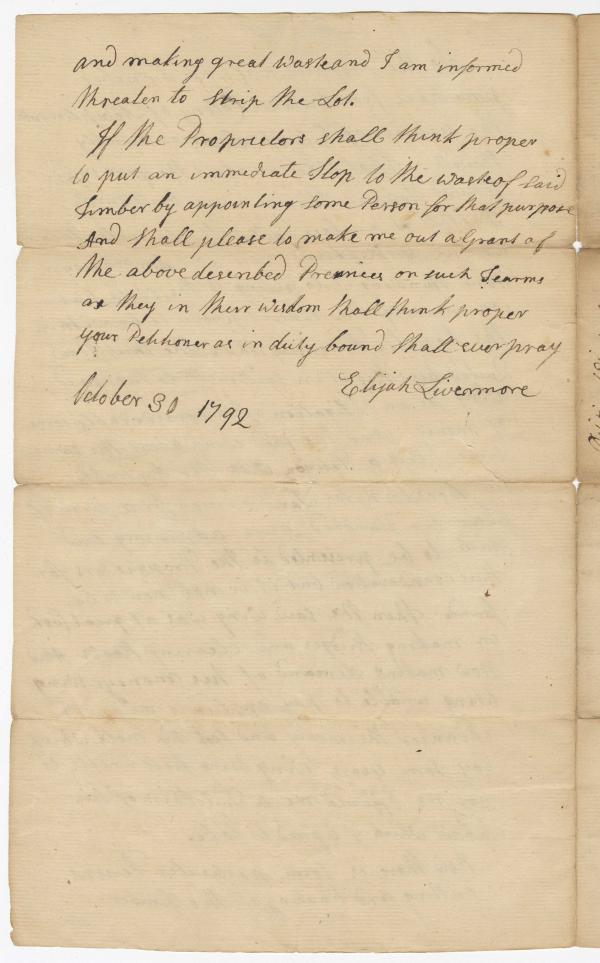 and making great waste and I am informed
threaten to strip the Lot.
If the Proprietors shall think proper
to put an immediate Stop to the waste of said
Timber by appointing some Person for that purpose
And shall please to make me out a Grant of
the above described Premices on such Tearms
as they in their wisdom shall think proper
your Petitioner as in duty bound shall ever pray
Elijah Livermore
October 30 1792